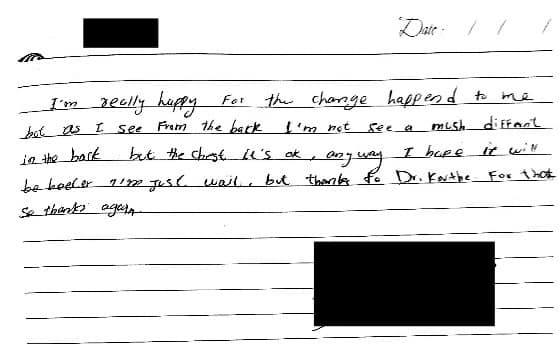 Date: / / /
I'm really happy For the change happend to me
but as I see From the back I'm not see a mush diffrent
in the back but the chest it's ok, any way I hope it will
be just wait, but thanks to Dr. For that
so thanks again